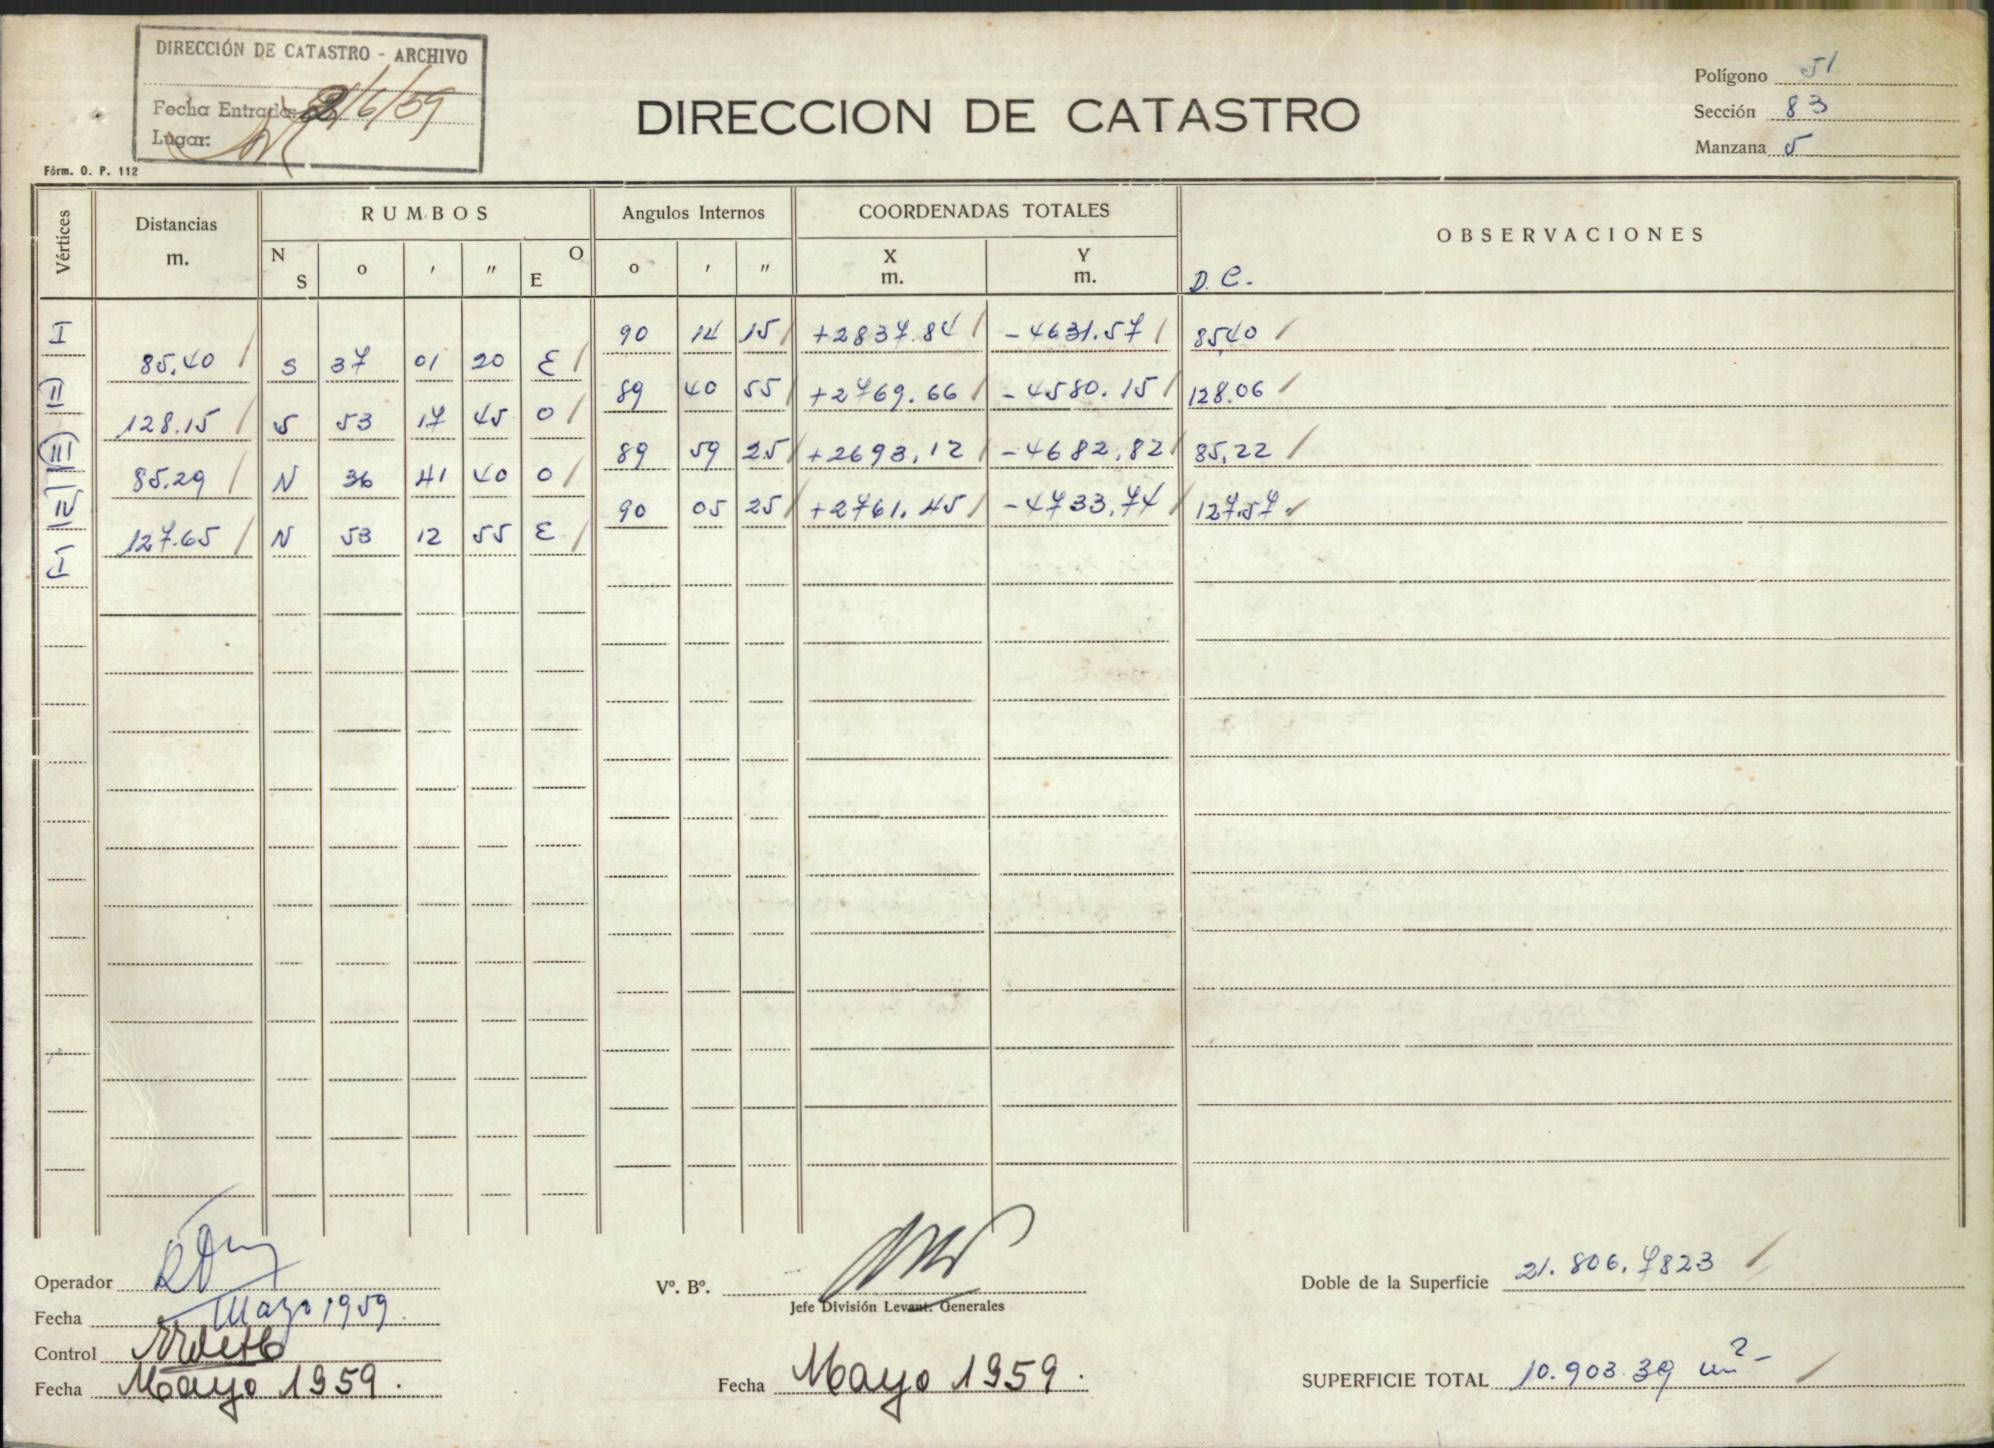 DIRECCIÓN DE CATASTRO - ARCHIVO
Fecha Entrada: 2/6/59
Lugar:
Fórm. O. P. 112
DIRECCION DE CATASTRO
Polígono 51
Sección 83
Manzana 5
Vértices
Distancias
m.
RUMBOS
N
S
o
,
"
O
E
Angulos Internos
o
,
"
COORDENADAS TOTALES
X
m.
Y
m.
OBSERVACIONES
D. C.
I 90 14 15 +2837.84 -4631.57 85.40
85.40 S 37 01 20 E
II 89 40 55 +2769.66 -4580.15 128.06
128.15 S 53 17 45 O
III 89 59 25 +2693.12 -4682.82 85.22
85.29 N 36 41 40 O
IV 90 05 25 +2761.45 -4733.74 127.57
127.65 N 53 12 55 E
I
Operador
Fecha Mayo 1959.
Control
Fecha Mayo 1959.
Vº. Bº.
Jefe División Levant. Generales
Fecha Mayo 1959.
Doble de la Superficie 21.806.7823
SUPERFICIE TOTAL 10.903.39 m²-